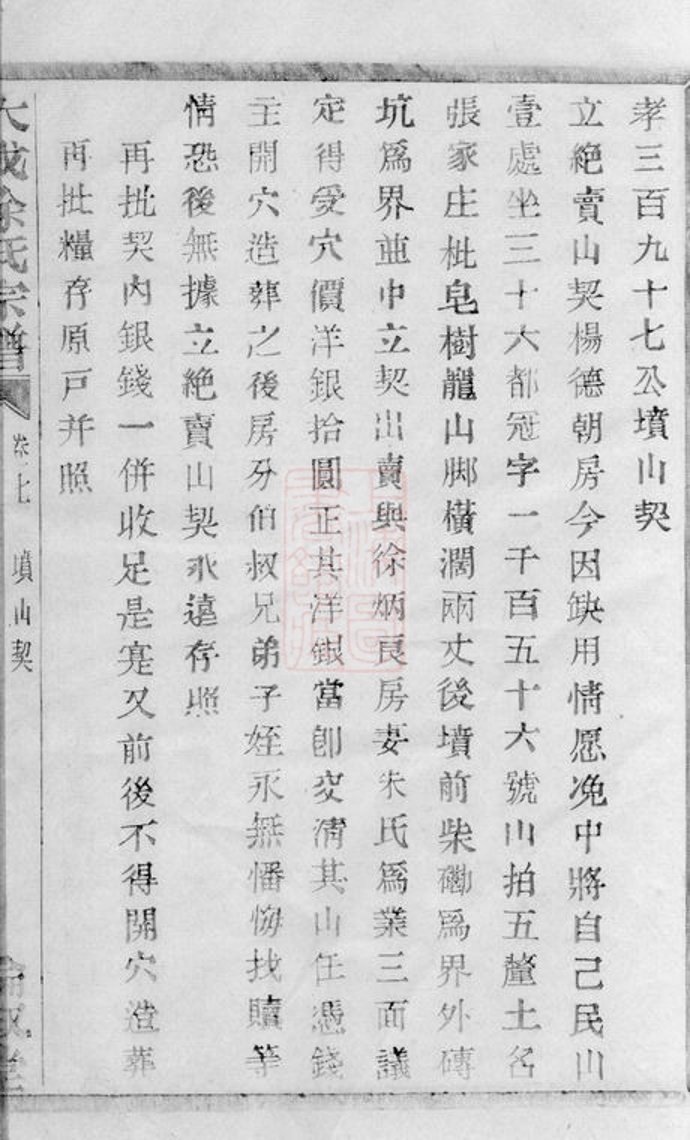 孝三百九十七公墳山契
立絶賣山契楊德朝房今因缺用情愿凂中將自己民山
壹處坐三十六都冠字一千百五十六號山拍五釐土名
張家庄枇皂樹龍山脚橫濶兩丈後墳前柴磡爲界外磚
坑爲界並中立契出賣與徐炳良房妻朱氏爲業三面議
定得受穴價洋銀拾圓正其洋銀當卽交淸其山任憑錢
主開穴造葬之後房分伯叔兄弟子姪永無憣悔找贖等
情恐後無據立絶賣山契永遠存照
再批契內銀錢一併收足是寔又前後不得開穴造葬
再批糧存原戸并照
徐氏宗譜
卷七
墳山契